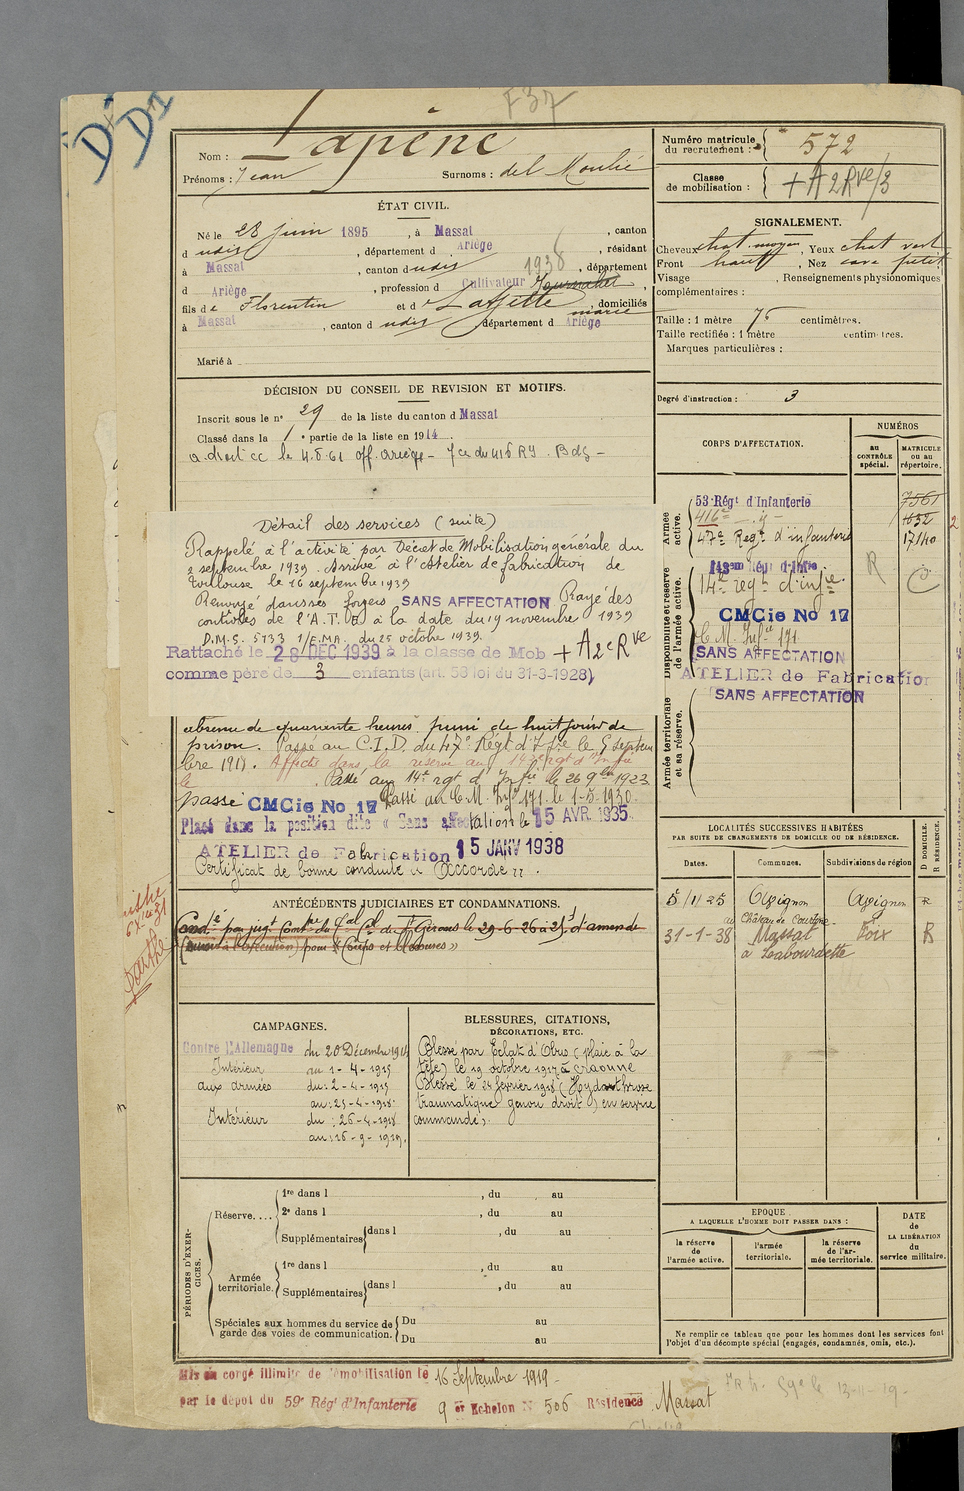 F37
D1
D1
Nom : Lapène
Prénoms : Jean Surnoms : del Moulié
Numéro matricule du recrutement : 572
Classe de mobilisation : + A 2 Rve/3
ÉTAT CIVIL.
Né le 28 juin 1895, à Massat, canton
d udis, département d Ariège, résidant
à Massat, canton d udis 1938, département
d Ariège, profession d Cultivateur
fils de Florentin et d , domiciliés
marié
à Massat, canton d udis département d Ariège
Marié à
SIGNALEMENT.
Cheveux chat. moyen, Yeux chat vert
Front haut, Nez cave petit
Visage , Renseignements physionomiques
complémentaires :
Taille : 1 mètre 76 centimètres.
Taille rectifiée : 1 mètre centimètres.
Marques particulières :
Degré d'instruction : 3
DÉCISION DU CONSEIL DE REVISION ET MOTIFS.
Inscrit sous le n° 29 de la liste du canton d Massat
Classé dans la 1e partie de la liste en 1914.
a droit cc le 4.8.61 off. Ariège - 7 ce du 416 RI. Bdg -
Détail des services (suite)
Rappelé à l'activité par Décret de Mobilisation générale du
2 septembre 1939. Arrivé à l'Atelier de fabrication de
Toulouse le 16 septembre 1939
Renvoyé dans ses foyers SANS AFFECTATION Rayé des
contrôles de l'A.T.E) à la date du 19 novembre 1939
D.M.S. 5133 1/E.M.A. du 25 octobre 1939.
Rattaché le 28 DEC 1939 à la classe de Mob + A 2e Rve
comme père de 3 enfants (art. 58 loi du 31-3-1928)
absence de quarante heures puni de huit jours de
prison. Passé au C.I.D. du 47e Régt d'Infie le 5 septem
bre 1918. Affecté dans la réserve au 14e rgt d'Infie
le . Passé au 14e rgt d'Infie le 26 9bre 1923
passé CMCie No 17 Passé au C.M. Infie 171 le 1-5-1930
Placé dans la position dite « Sans affectation » le 15 AVR. 1935
ATELIER de Fabrication 15 JANV 1938
Certificat de bonne conduite « Accordé ».
CORPS D'AFFECTATION.
NUMÉROS
au CONTRÔLE spécial.
MATRICULE ou au répertoire.
Armée active.
53e Régt d'Infanterie 7561
416e - d° - 1632
47e Régt d'infanterie 17140
Disponibilité et réserve de l'armée active.
14e regt d'infie R C
CMCie No 17
C.M. Infie 171
SANS AFFECTATION
ATELIER de Fabrication
Armée territoriale et sa réserve.
SANS AFFECTATION
ANTÉCÉDENTS JUDICIAIRES ET CONDAMNATIONS.
Condé par jugt Contre du Tal Cel de St Girons le 29-6-26 à 25f d'amende
(sursis à l'exécution) pour « Coups et blessures »
LOCALITÉS SUCCESSIVES HABITÉES
PAR SUITE DE CHANGEMENTS DE DOMICILE OU DE RÉSIDENCE.
Dates. Communes. Subdivisions de région
D DOMICILE. R RÉSIDENCE.
5/11/25 Avignon Avignon R
au Château de Courtine
31-1-38 Massat Foix R
à Labourdette
CAMPAGNES.
Contre l'Allemagne du 20 Décembre 1914
Intérieur au 1-4-1915
aux armées du : 2-4-1915
au : 25-4-1918.
Intérieur du : 26-4-1918
au : 16-9-1919.
BLESSURES, CITATIONS,
DÉCORATIONS, ETC.
Blessé par Eclat d'Obus (plaie à la
tête) le 19 octobre 1917 à Craonne
Blessé le 24 février 1918 (Hydarthrose
traumatique genou droit) en service
commandé).
PÉRIODES D'EXERCICES.
Réserve....
1re dans l , du au
2e dans l , du au
Supplémentaires dans l , du au
Armée territoriale.
1re dans l , du au
Supplémentaires dans l , du au
Spéciales aux hommes du service de garde des voies de communication.
Du au
Du au
EPOQUE
A LAQUELLE L'HOMME DOIT PASSER DANS :
la réserve de l'armée active.
l'armée territoriale.
la réserve de l'armée territoriale.
DATE de LA LIBÉRATION du service militaire.
Ne remplir ce tableau que pour les hommes dont les services font
l'objet d'un décompte spécial (engagés, condamnés, omis, etc.).
Mis en congé illimité de démobilisation le 16 Septembre 1919
par le dépôt du 59e Régt d'Infanterie 9 er Echelon N° 506 Résidence Massat
13-11-19-